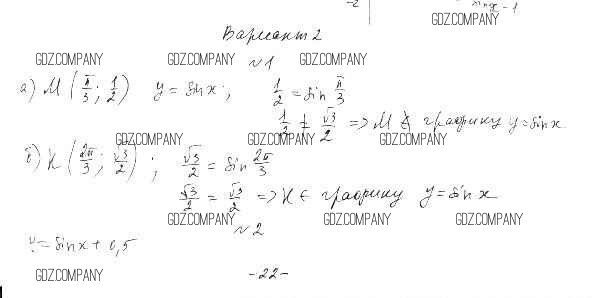 -2 sin x - 1
GDZ.COMPANY
Вариант 2
GDZ.COMPANY GDZ.COMPANY GDZ.COMPANY
№1
а) M (π/3; 1/2) y = sin x; 1/2 = sin π/3
1/2 ≠ √3/2 => M ∉ графику y = sin x.
GDZ.COMPANY GDZ.COMPANY GDZ.COMPANY
б) K (2π/3; √3/2); √3/2 = sin 2π/3
√3/2 = √3/2 => K ∈ графику y = sin x
GDZ.COMPANY GDZ.COMPANY GDZ.COMPANY
№2
y = sin x + 0,5
GDZ.COMPANY
-22-